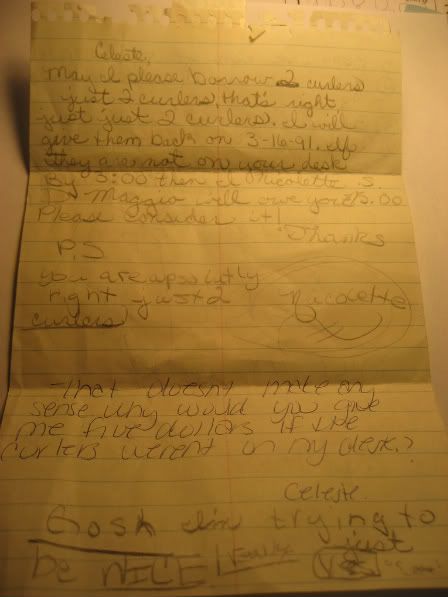 Celeste,
May I please borrow 2 curlers
just 2 curlers, that's right
just just 2 curlers. I will
give them back on 3-16-91. If
they are not on your desk
By 3:00 then I Nicolette S.
D. Maggio will owe you $5.00
Please consider it!
Thanks
P.S
you are apsolutly
right just 2
curlers
Nicolette
That doesn't make any
sense why would you give
me five dollars if the
curlers weren't on my desk?
Celeste
Gosh I'm trying to
just
be NICE